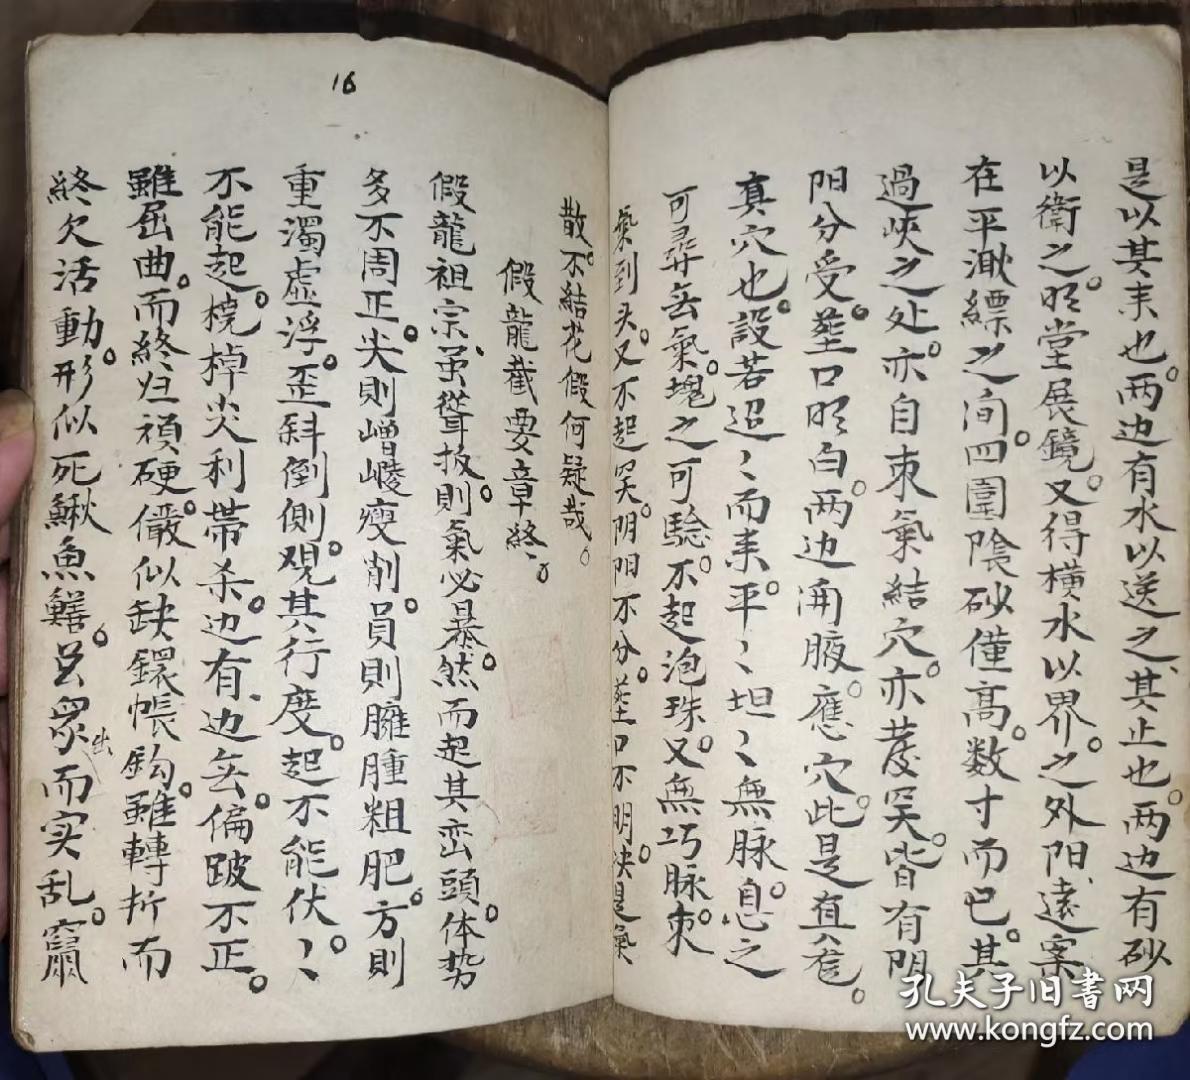 是以其来也。两边有水以送之、其止也。两边有砂
以衛之。明堂展鏡。又得横水以界。之外阳、遠案
在平㴾縹之间。四圍陰砂僅高。数寸而已。其
過峡之处。亦自束氣結穴。亦芨罙。皆有阴
阳分受。塟口明白。两边開腋。應穴。此是真龙。
真穴也。設若迢〻而来。平〻坦〻無脉。息之
可尋無氣。塊之可驗。不起泡珠。又無巧脉。束
氣到头。又不起罙。阴阳不分。塟口不明。决是氣
散。不結花假何疑哉。
假龍截要章終。
假龍祖宗、虽聳拔則。氣必暴然。而起其峦頭。体势
多不周正。尖則嶒崚瘦削。員則臃腫粗肥。方則
重濁虚浮。歪斜倒側。观其行度。起不能伏〻。
不能起。橈棹尖利帶杀。边有、边無。偏跛不正。
雖屈曲。而終归頑硬。儼似缺鐶帳鈎。雖轉折而
終欠活動。形似死鰍魚鱔。出而实乱。竄
16
孔夫子旧書网
www.kongfz.com